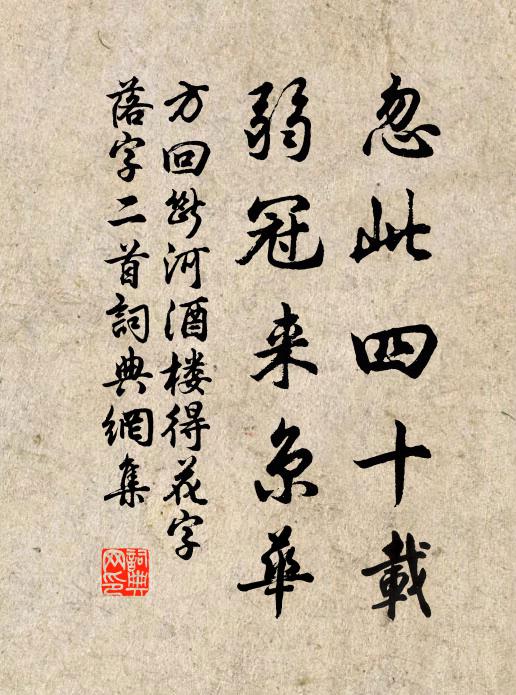 忽此四十載
弱冠来京華
方回断河酒楼得花字
落字二首詞典網集
詞典
网印